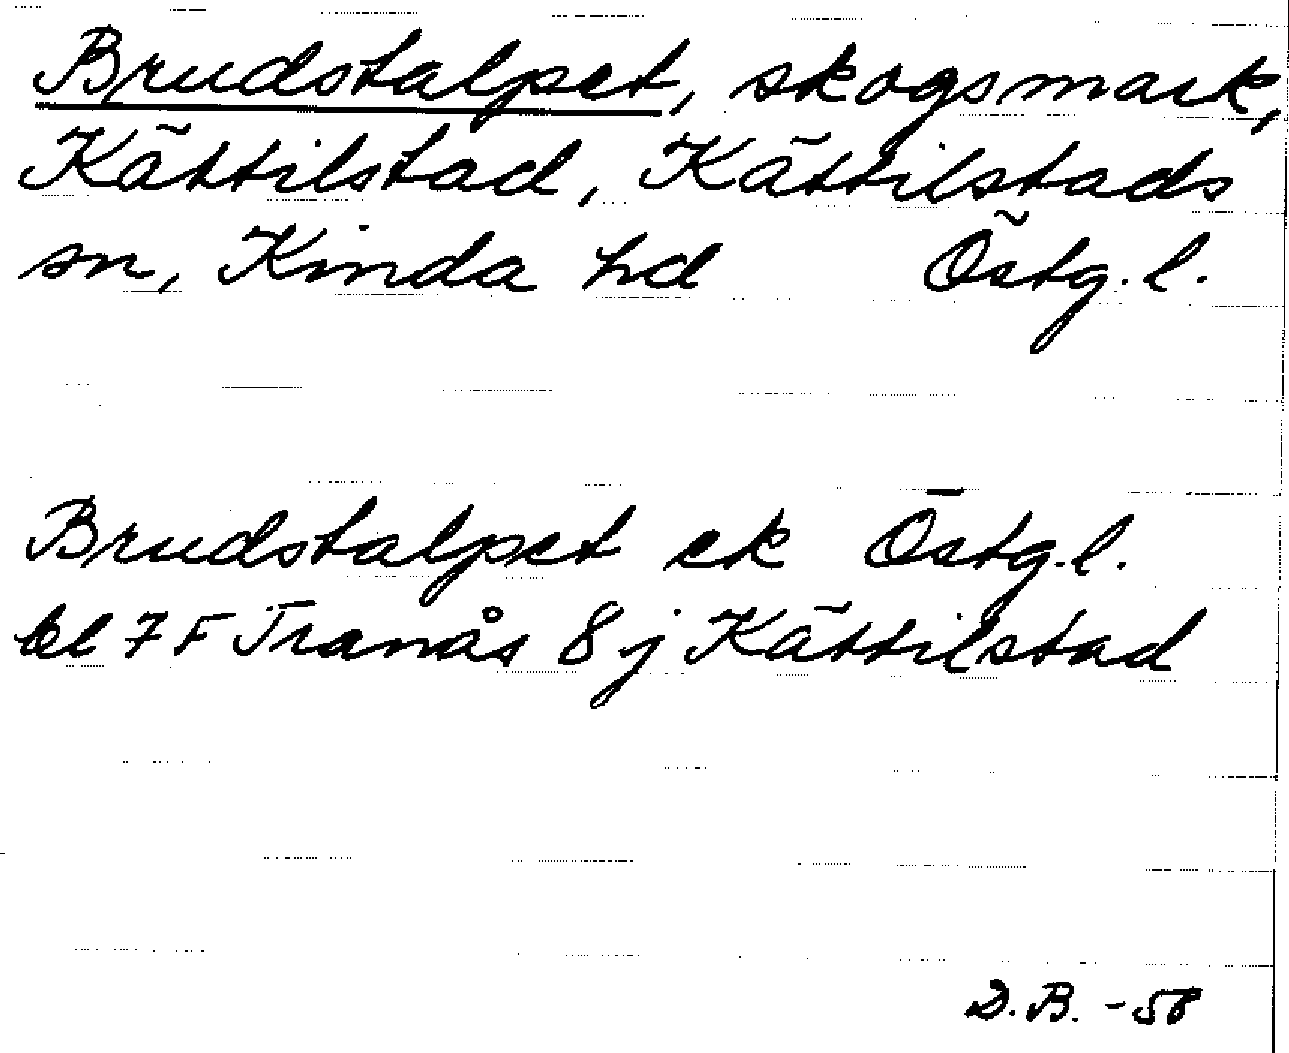 Brudstalpet, skogsmark,
Kättilstad, Kättilstads
sn, Kinda hd Östg.l.
Brudstalpet ek Östg.l.
bl 7 F Tranås 8 j Kättilstad
D.B. -58